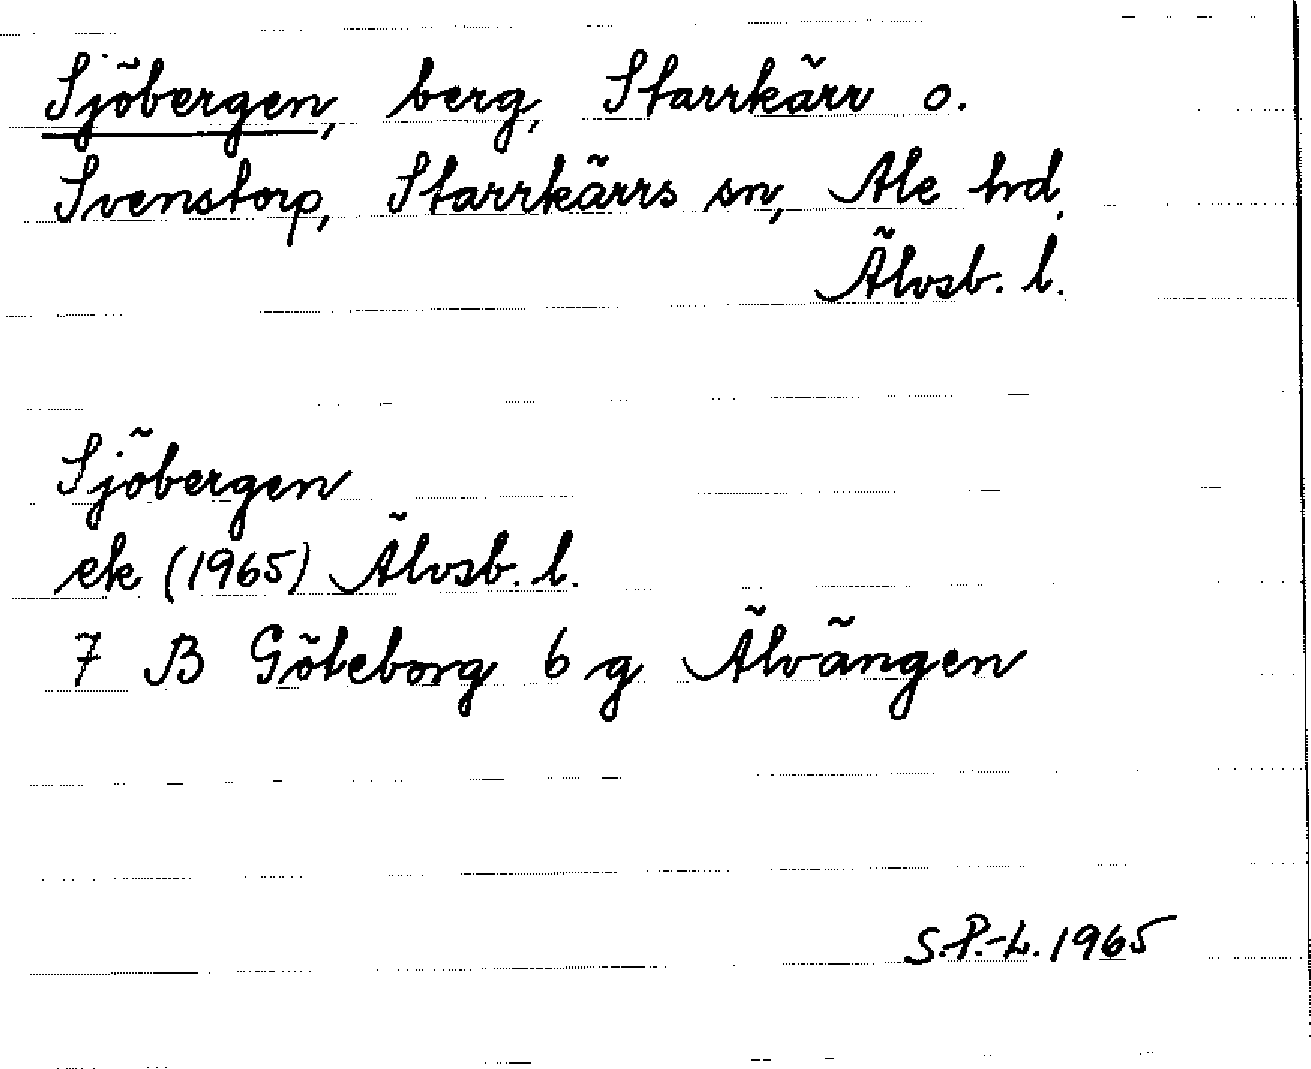 Sjöbergen, berg, Starrkärr o.
Svenstorp, Starrkärrs sn, Ale hd,
Älvsb. l.
Sjöbergen
ek (1965) Älvsb. l.
7 B Göteborg 6 g Älvängen
S.P.-L. 1965